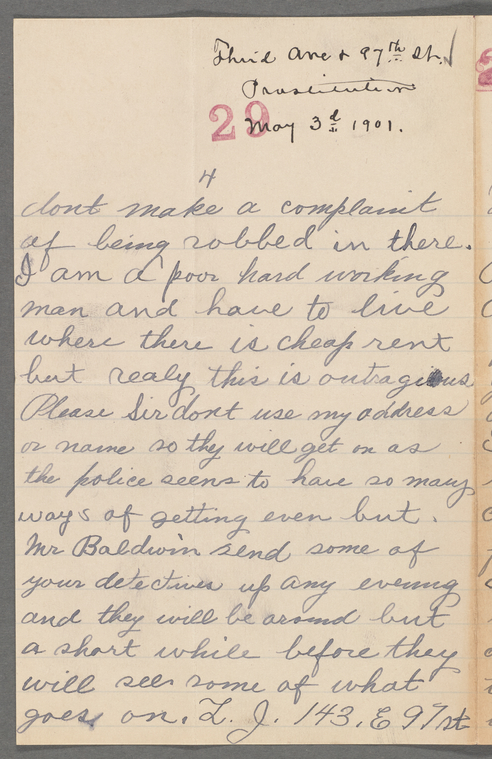 Third Ave & 97th St.
Prostitution
29
May 3d 1901.
4
dont make a complaint
of being robbed in there.
I am a poor hard working
man and have to live
where there is cheap rent
but realy this is outragious
Please Sir dont use my address
or name so thy will get on as
the police seems to have so many
ways of getting even but.
Mr Baldwin send some of
your detectives up any evening
and they will be around but
a short while before they
will see some of what
goes on. L. J. 143. E 97 st